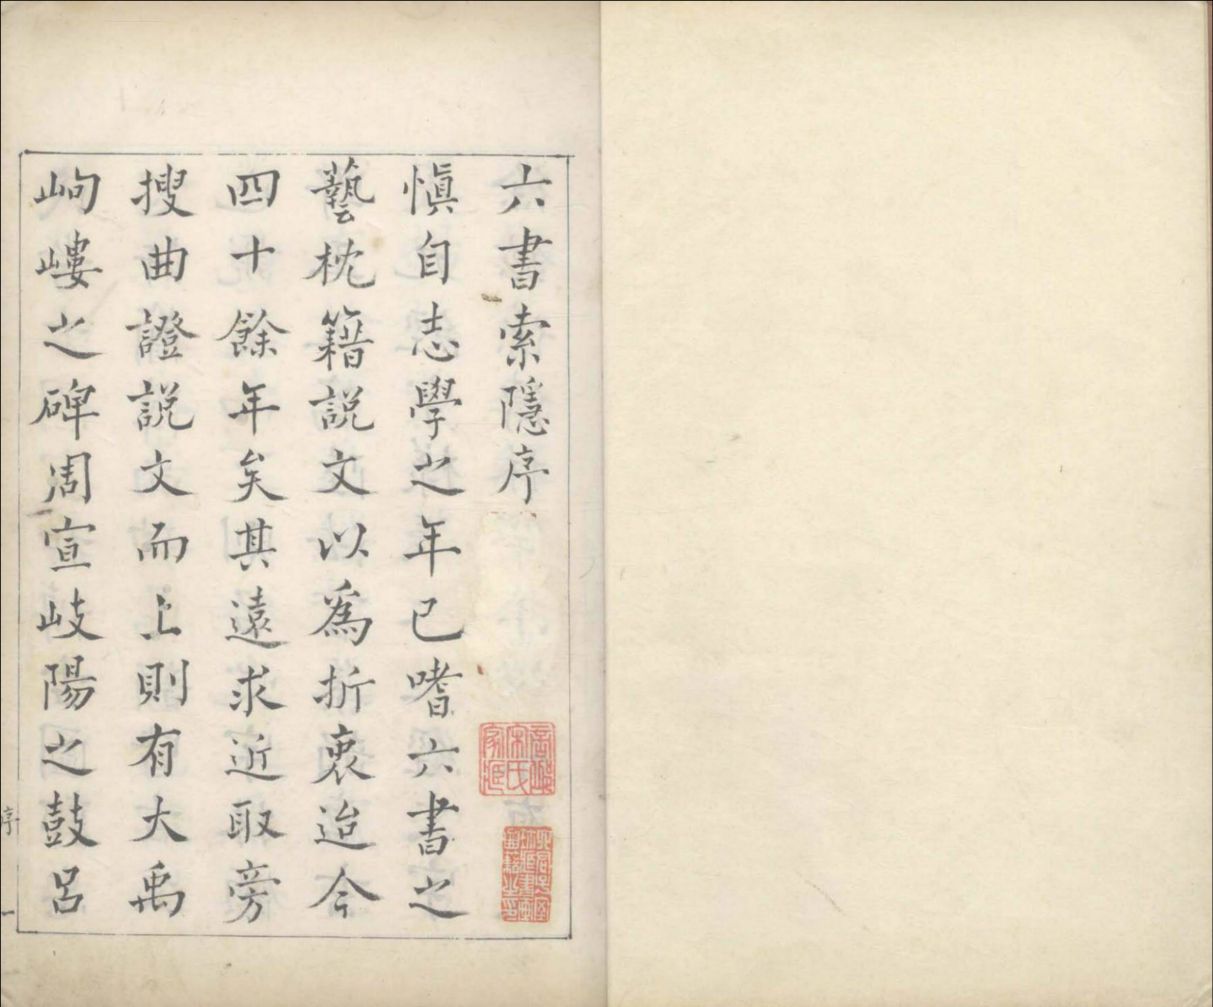 六書索隱序
慎自志學之年已嗜六書之
藝枕籍説文以爲折衷迨今
四十餘年矣其遠求近取旁
搜曲證説文而上則有大禹
岣嶁之碑周宣岐陽之鼓呂
序
一